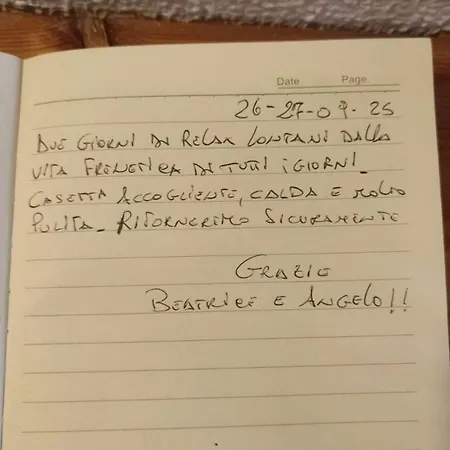 Date Page
26-27-09-25
DUE GIORNI DI RELAX LONTANI DALLA
VITA FRENETICA DI TUTTI I GIORNI_
CASETTA ACCOGLIENTE, CALDA E MOLTO
PULITA_ RITORNEREMO SICURAMENTE
GRAZIE
BEATRICE E ANGELO!!